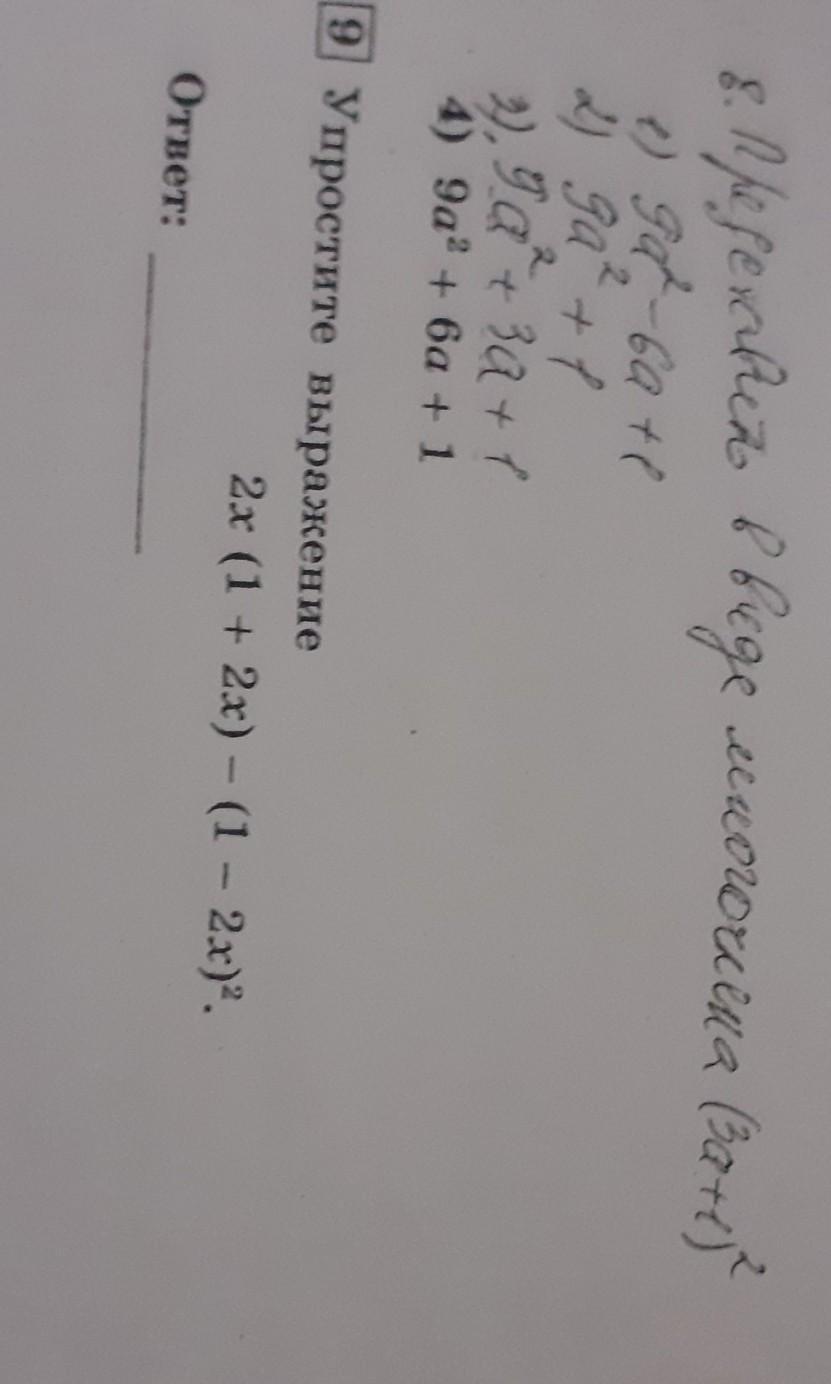 8. Представить в виде многочлена (3a+1)²
1) 9a² - 6a + 1
2) 9a² + 1
3) 9a² + 3a + 1
4) 9a² + 6a + 1
9 Упростите выражение
2x (1 + 2x) – (1 – 2x)².
Ответ: